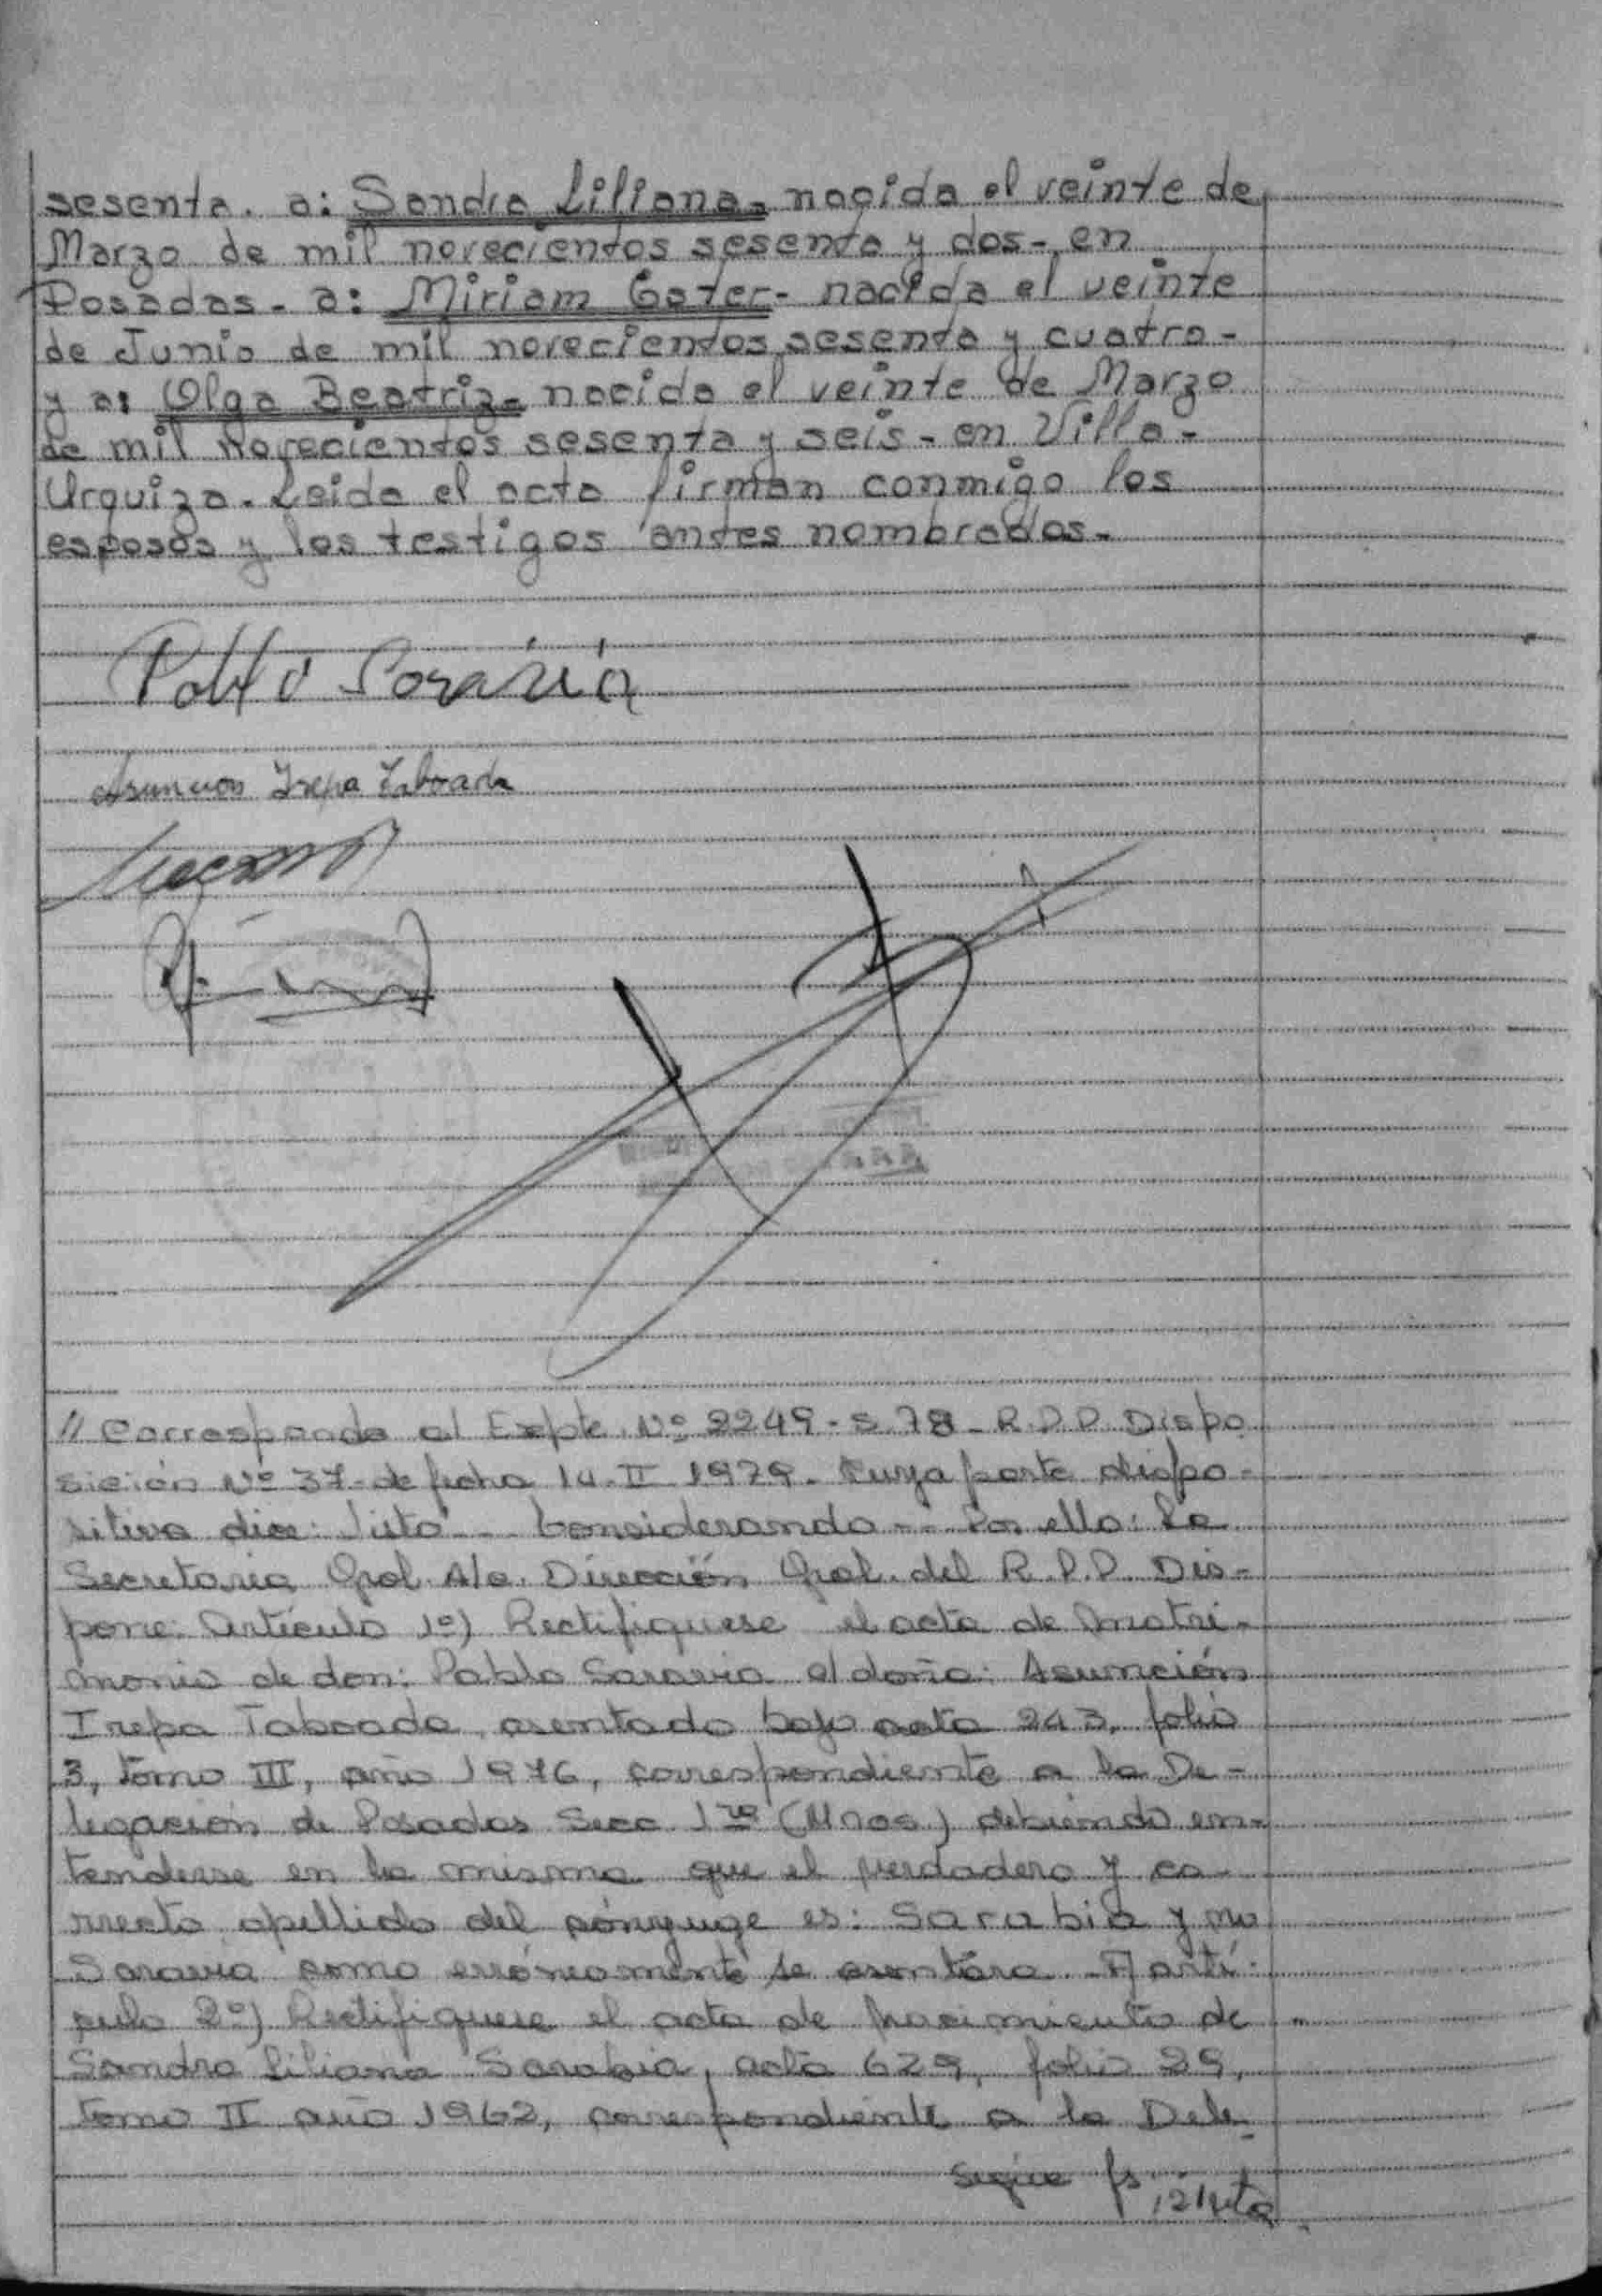 sesenta. a: Sandra Liliana- nacida el veinte de
Marzo de mil novecientos sesenta y dos- en
Posadas- a: Miriam Ester- nacida el veinte
de Junio de mil novecientos sesenta y cuatro-
y a: Olga Beatriz- nacida el veinte de Marzo
de mil novecientos sesenta y seis- en Villa-
Urquiza. Leida el acta firman conmigo los
esposos y los testigos antes nombrados-
Pablo Saravia
Asuncion Irepa Taboada
// Corresponde al Expte. Nº 2249-S-78- R.P.P. Dispo
sición Nº 37- de fecha 14-II 1979- Cuya parte dispo-
sitiva dice: Visto - Considerando - Por ello: La
Secretaria Gral. A/c. Dirección Gral. del R.P.P. Dis-
pone: Artículo 1º) Rectifiquese el acta de matri-
monio de don: Pablo Saravia c/ doña: Asunción
Irepa Taboada, asentado bajo acta 243, folio
3, tomo III, año 1976, correspondiente a la De-
legación de Posadas Secc. 1ra (Mnes) debiendo en-
tenderse en la misma que el verdadero y co-
rrecto apellido del cónyuge es: Sarabia y no
Saravia como erróneamente se asentara. Artí-
culo 2º) Rectifiquese el acta de nacimiento de
Sandra Liliana Sarabia, acta 629, folio 29,
tomo II año 1962, correspondiente a la Dele-
Sigue fs.